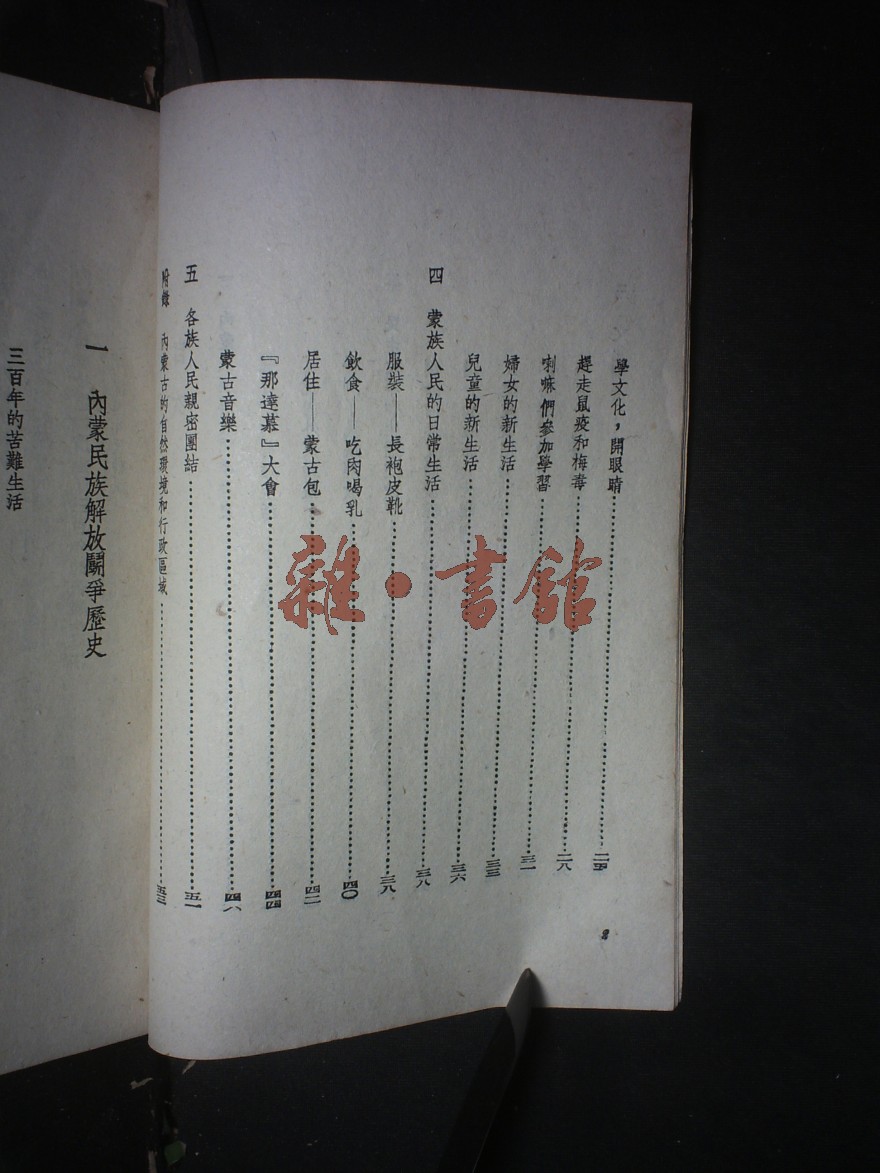 學文化，開眼睛……二五
趕走鼠疫和梅毒……二八
喇嘛們參加學習……三一
婦女的新生活……三三
兒童的新生活……三六
四　蒙族人民的日常生活……三八
服裝——長袍皮靴……三八
飲食——吃肉喝乳……四〇
居住——蒙古包……四二
『那達慕』大會……四四
蒙古音樂……四八
五　各族人民親密團結……五一
附錄　內蒙古的自然環境和行政區域……五三
2
一　內蒙民族解放鬭爭歷史
三百年的苦難生活
雜·書館